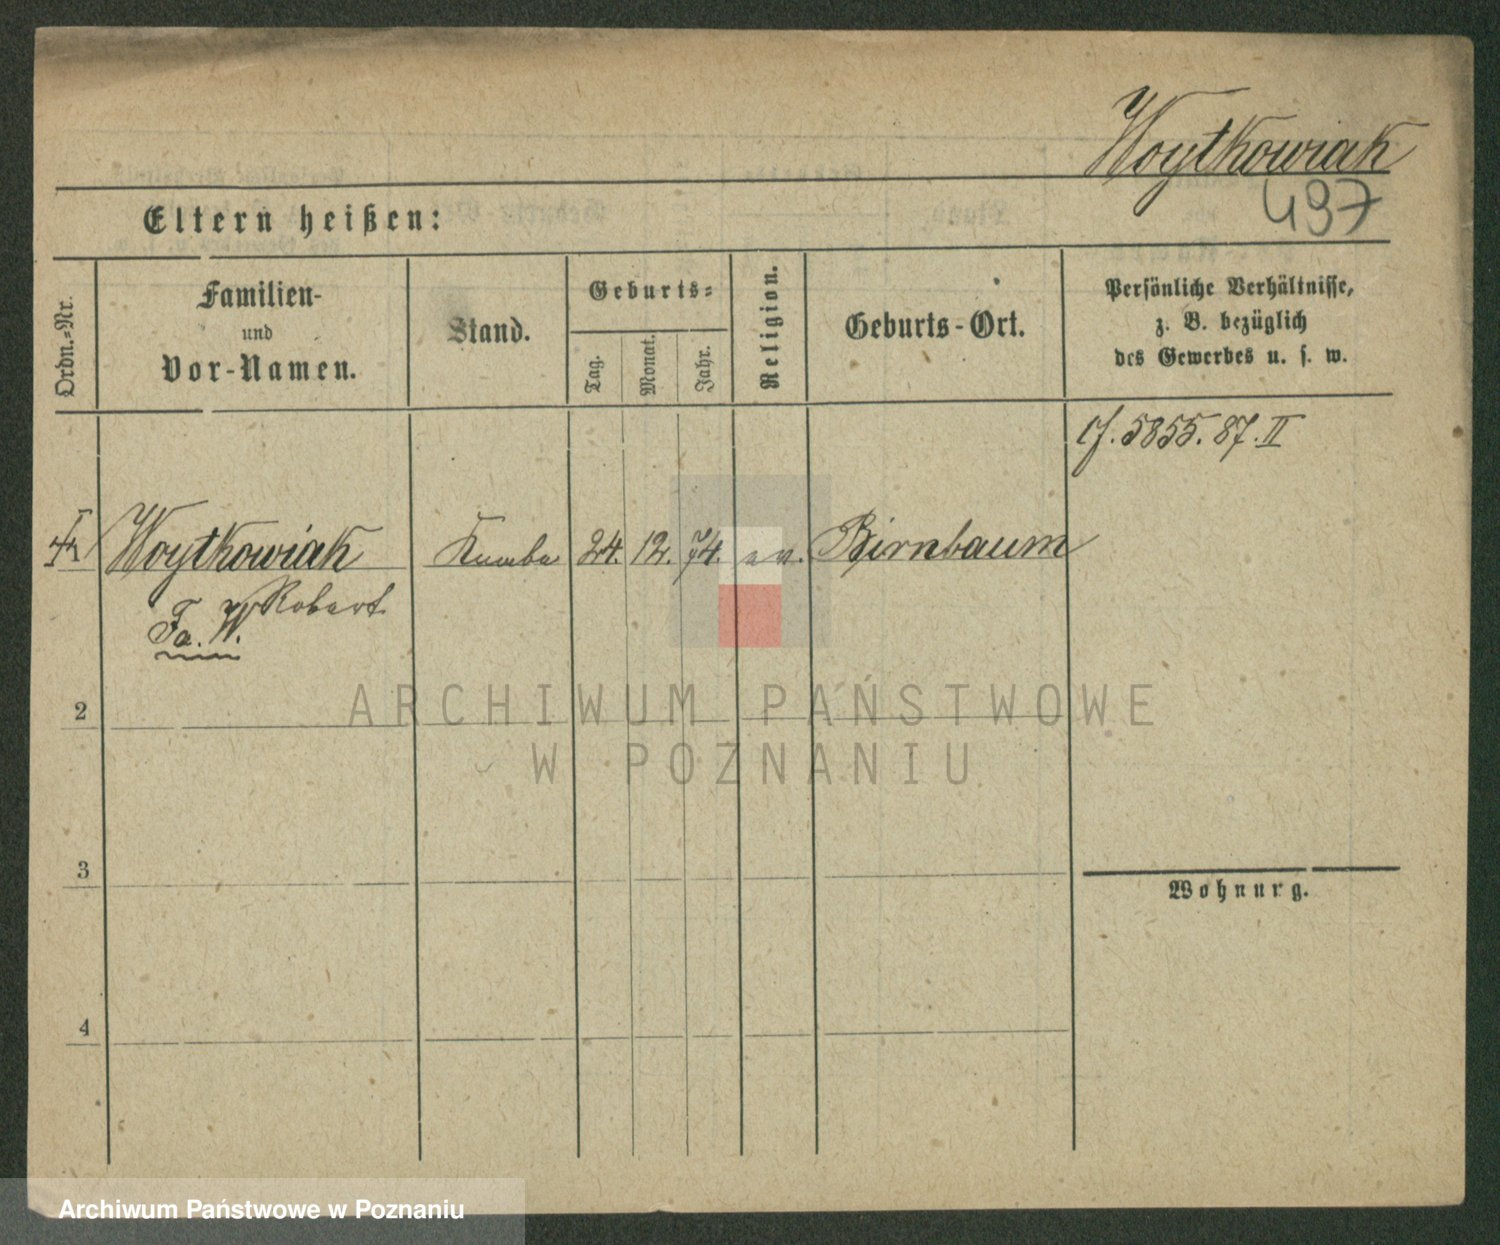 Woytkowiak
497
Eltern heißen:
Ordn.-Nr.
Familien-
und
Vor-Namen.
Stand.
Geburts-
Tag.
Monat.
Jahr.
Religion.
Geburts-Ort.
Persönliche Verhältnisse,
z. B. bezüglich
des Gewerbes u. s. w.
cf. 5855. 87. II
I Woytkowiak Knabe 24. 12. 74. ev. Birnbaum
Robert
Fa. W.
2
3
4
Wohnung.
ARCHIWUM PAŃSTWOWE
W POZNANIU
Archiwum Państwowe w Poznaniu